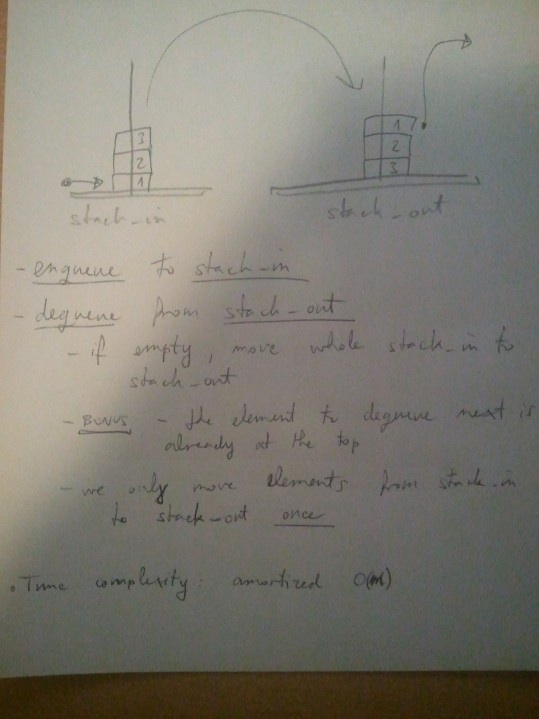 3
2
1
1
2
3
stack_in
stack_out
- enqueue to stack_in
- dequeue from stack_out
- if empty, move whole stack_in to
stack_out
- BONUS - the element to dequeue next is
already at the top
- we only move elements from stack_in
to stack_out once
• Time complexity: amortized